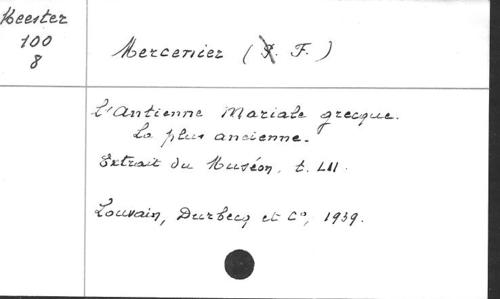 Meester
100
8
Mercenier (P. F.)
L'Antienne Mariale grecque.
La plus ancienne.
Extrait du Muséon, t. LII.
Louvain, Durbecq et Cº, 1939.